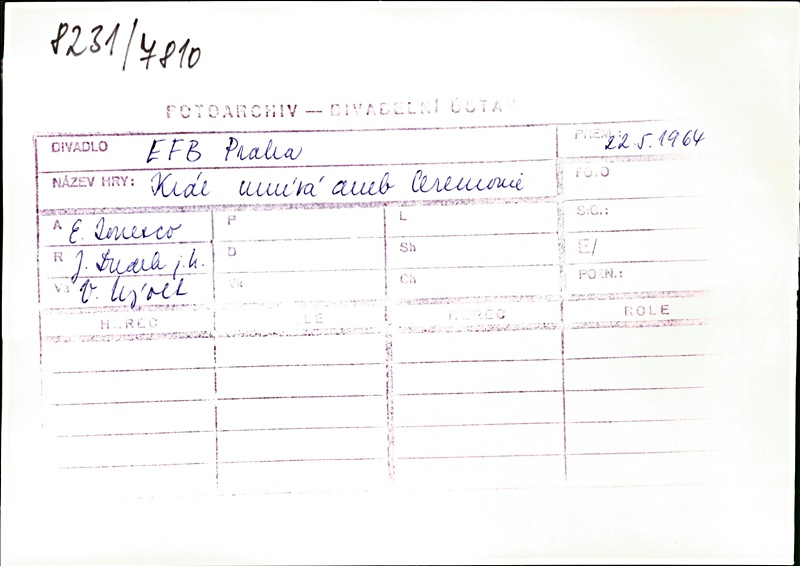 8231/7810
FOTOARCHIV — DIVADELNÍ ÚSTAV
DIVADLO EFB Praha PREM.: 22.5.1964
NÁZEV HRY: Král umírá aneb Ceremonie FOTO
A E. Ionesco P L SIG.:
R J. j.h. D Sh E/
V. Vk Ch POZN.:
HEREC ROLE HEREC ROLE